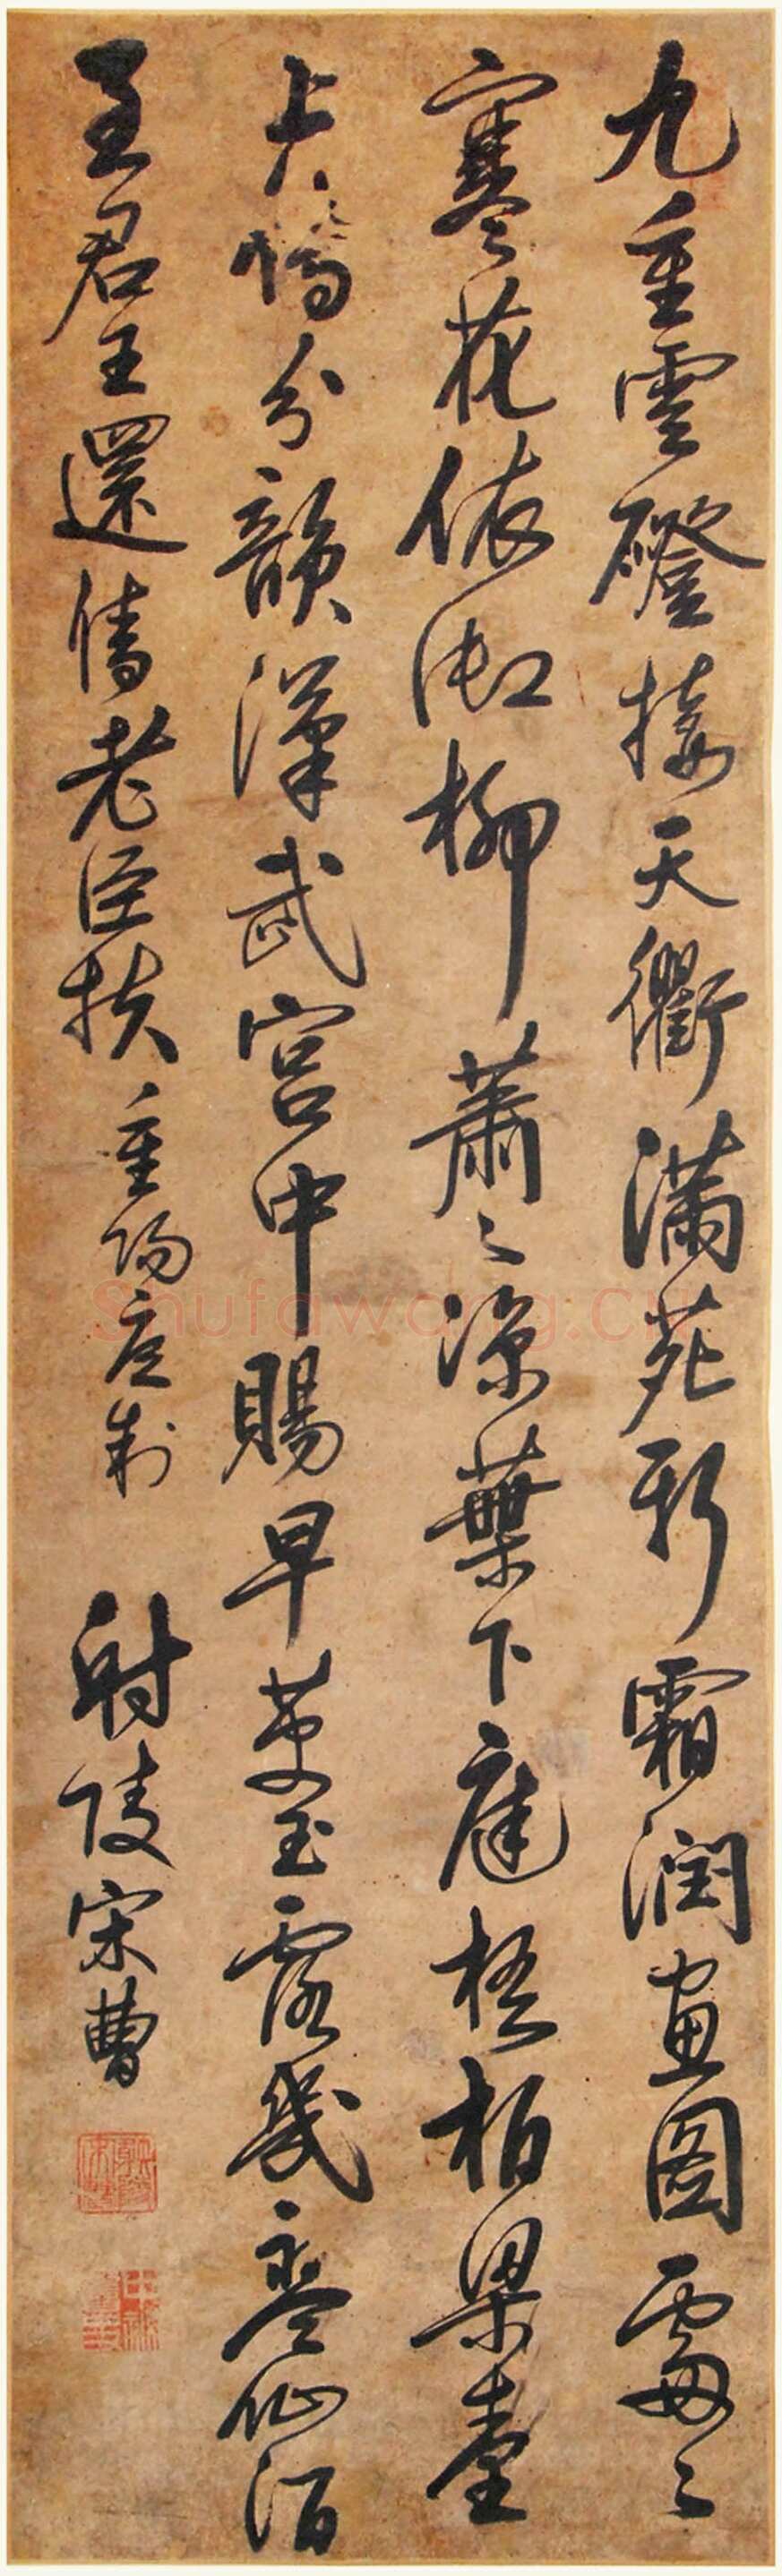 九重雲磴接天衢滿苑新霜潤畫圖處〻
寒花依御柳蕭〻涼葉下庭梧柏梁臺
上分韻漢武宮中賜早萸玉露幾盃仙酒
至君王還倩老臣扶 重陽應制 射陵宋曹
Shufawang.CN